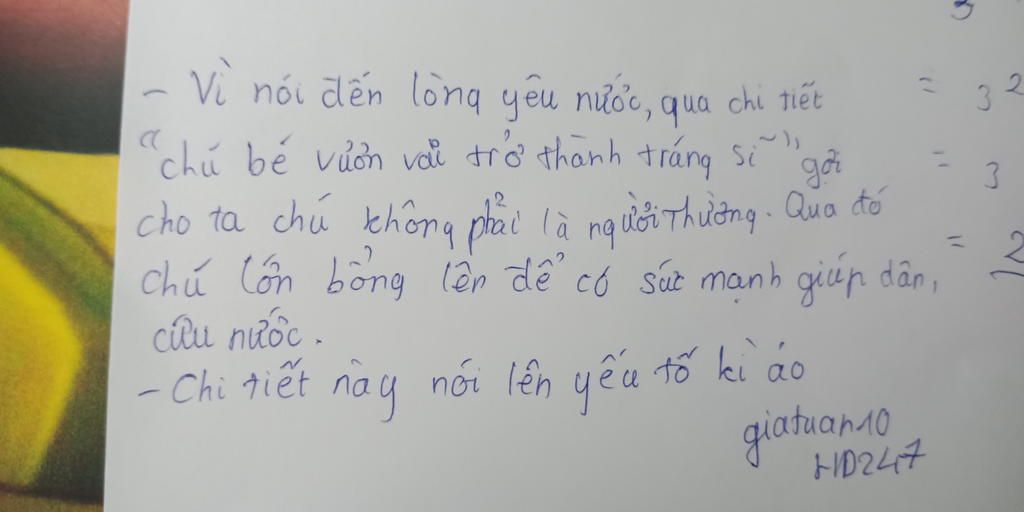 - Vì nói đến lòng yêu nước, qua chi tiết
"chú bé vươn vai trở thành tráng sĩ" gợi
cho ta chú không phải là người thường. Qua đó
chú lớn bổng lên để có sức mạnh giúp dân,
cứu nước.
- Chi tiết này nói lên yếu tố kì ảo
giatuan10
HD247
= 3 2
= 3
= 2